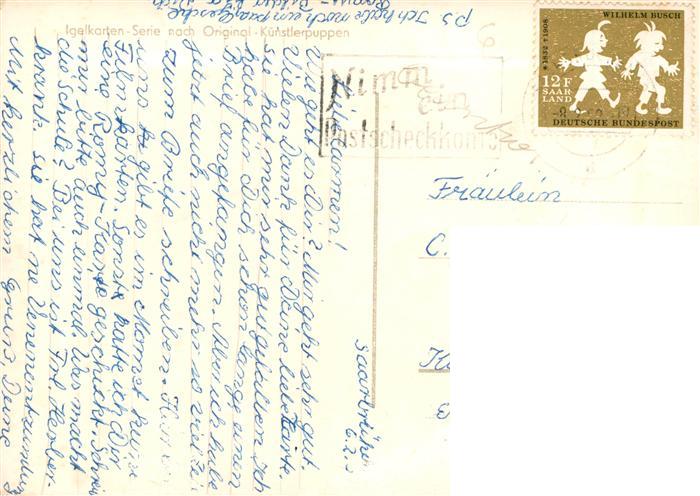 Igelkarten-Serie nach Original-Künstlerpuppen
PS Ich habe noch ein
WILHELM BUSCH
*1832 †1908
12F
SAAR-
LAND
DEUTSCHE BUNDESPOST
Nimm
ein
Postscheckkonto
Fräulein
C.
Saarbrücken
6.2.
Wie geht es Dir? Mir geht es sehr gut.
Vielen Dank für Deine liebe Karte.
sie hat mir sehr gut gefallen. Ich
habe für Dich schon lange einen
Brief angefangen. Aber ich habe
jetzt auch nicht mehr so viel Zeit
zum Briefe schreiben.
uns gibt es im Moment keine
Filmkarten. Sonst hätte ich Dir
eine Romy-Karte geschickt. Schreib
mir bitte auch einmal. Was macht
die Schule? Bei uns ist Frl. Herber-
krank sie hat ne Venenentzündung
Mit herzlichem Gruß, Deine